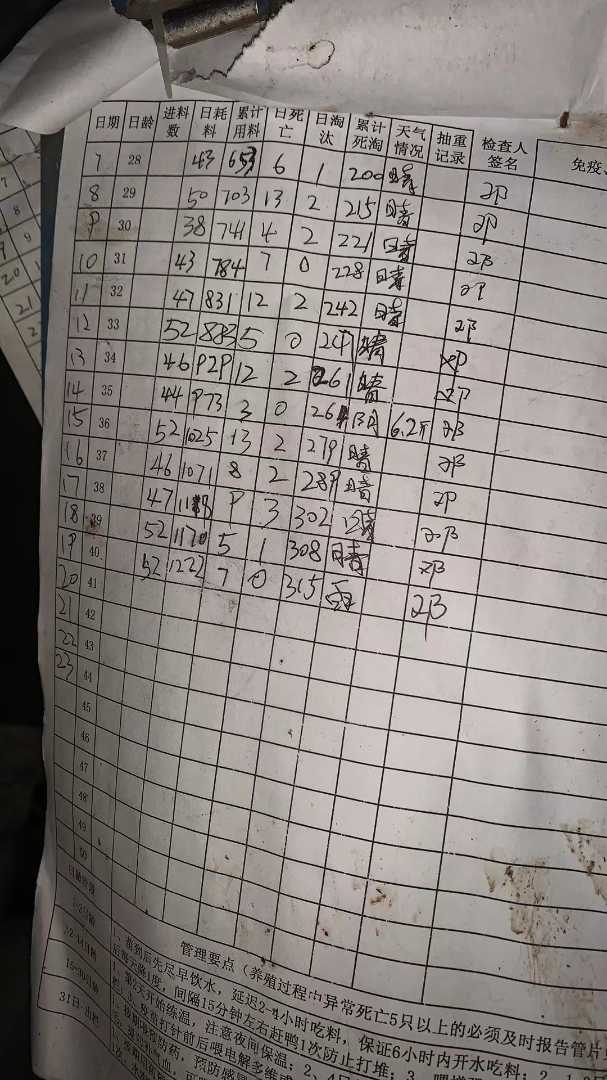 日期 日龄 进料数 日耗料 累计用料 日死亡 日淘汰 累计死淘 天气情况 抽重记录 检查人签名 免疫
7 28 43 653 6 1 200 晴 邓
8 29 50 703 13 2 215 晴 邓
9 30 38 741 4 2 221 晴 邓
10 31 43 784 7 0 228 晴 邓
11 32 47 831 12 2 242 晴 邓
12 33 52 883 5 0 247 晴 邓
13 34 46 929 12 2 261 晴 邓
14 35 44 973 3 0 264 阴 6.2斤 邓
15 36 52 1025 13 2 279 晴 邓
16 37 46 1071 8 2 289 晴 邓
17 38 47 1118 9 3 302 晴 邓
18 39 52 1170 5 1 308 晴 邓
19 40 52 1222 7 0 315 雨 邓
20 41
21 42
22 43
23 44
45
46
47
48
49
50
管理要点（养殖过程中异常死亡5只以上的必须及时报告管
1、苗到后先尽早饮水，延迟2-4小时吃料，保证6小时内开水吃料；2、
后每天降1度。间隔15分钟左右赶鸭1次防止打堆；3
1、第2天开始练温，注意夜间保温；2、4日
打针前后喂电解多维
31日-出栏